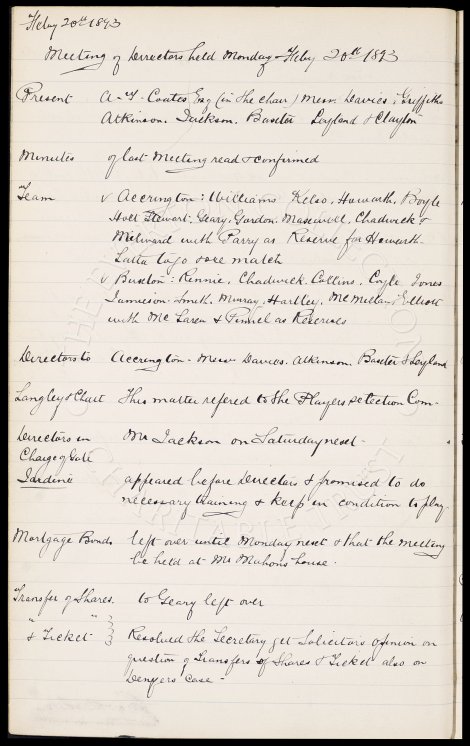 Feby 20th 1893
Meeting of Directors held Monday Feby 20th 1893
Present A-T. Coates Esq (in the chair) Messrs Davies, Griffiths
Atkinson. Jackson. Baxter Leyland & Clayton
Minutes of last Meeting read & confirmed
Team v Accrington: Williams Kelso, Howarth, Boyle
Holt Stewart. Geary. Gordon. Maxwell. Chadwick &
Milward with Parry as Reserve for Howarth.
Latta to go & see match
v Buxton: Rennie, Chadwick. Collins. Coyle Jones
Jamieson. Smith. Murray. Hartley. McMillan. Elliott
with McLaren & Pinnel as Reserves
Directors to Accrington - Messrs Davies. Atkinson. Baxter & Leyland
Langley & Chart This matter refered to the Players selection Com-
Directors in Mr Jackson on Saturday next -
Charge of Gate
Jardine appeared before Directors & promised to do
necessary training & keep in condition to play.
Mortgage Bonds left over until Monday next & that the meeting
be held at Mr Mahon's house.
Transfer of Shares. to Geary left over
" "
& Ticket Resolved the Secretary get Solicitors opinion on
question of Transfers of Shares & Ticket also on
case -